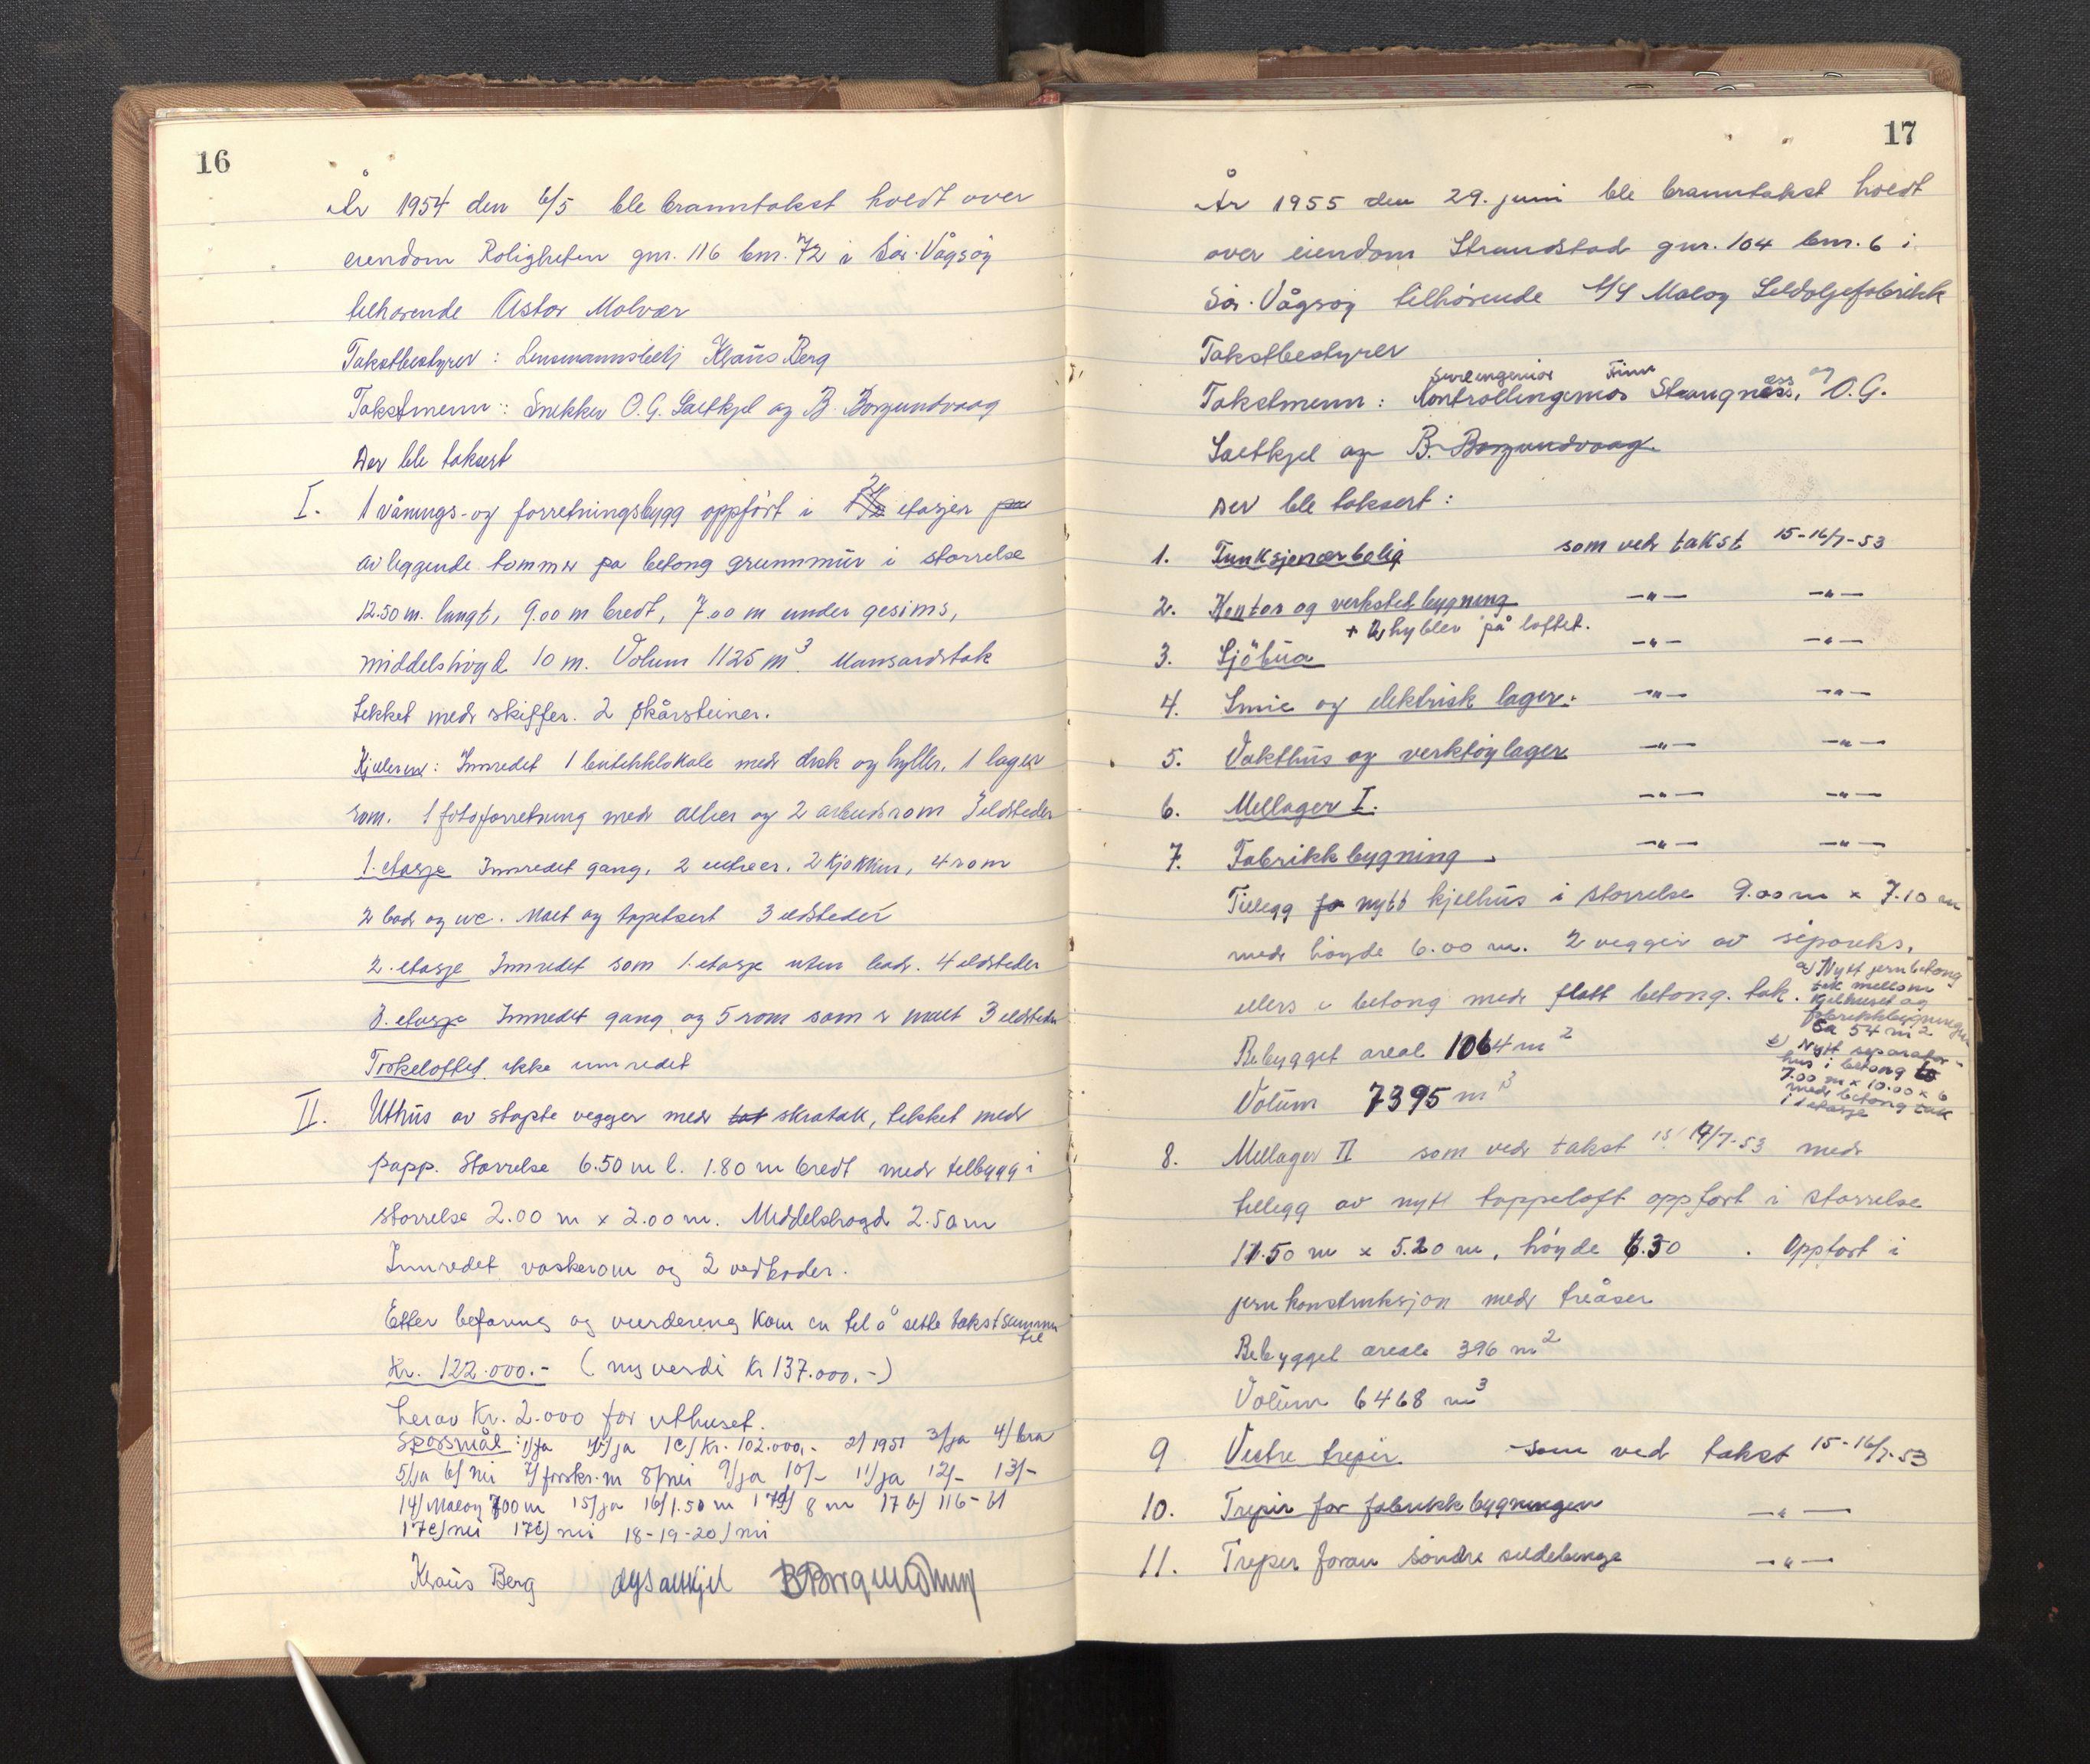 16
År 1954 den 6/5 ble branntakst holdt over
eiendom Roligheten gnr. 116 bnr. 72 i Sør-Vågsøy
tilhørende Astor Molvær
Takstbestyrer: Lensmannsbetj Klaus Berg
Takstmenn: Snekker O.G. Saltkjel og B. Borgundvaag
Der ble taksert
I. 1 vånings- og forretningsbygg oppført i 2½ etasjer på
av liggende tømmer på betong grunnmur i størrelse
12.50 m. langt, 9.00 m bredt, 7.00 m under gesims,
middelshøyd 10 m. Volum 1125 m³. Mansardtak
tekket med skiffer. 2 skårsteiner.
Kjelleren: Innredet 1 butikklokale med disk og hyller, 1 lager
rom. 1 fotoforretning med atlier og 2 arbeidsrom Ildsteder
1. etasje Innredet gang, 2 entreer, 2 kjøkken, 4 rom
2 bad og wc. Malt og tapetsert 3 ildsteder
2. etasje Innredet som 1. etasje uten bad. 4 ildsteder
3. etasje Innredet gang og 5 rom som er malt 3 ildsteder
Tørkeloftet ikke innredet
II. Uthus av støpte vegger med tat skråtak, tekket med
papp. Størrelse 6.50 m l. 1.80 m bredt med tilbygg i
størrelse 2.00 m x 2.00 m. Middelshøgd 2.50 m
Innredet vaskerom og 2 vedboder.
Etter befaring og vurdering kom en til å sette takstsummen
til
Kr. 122.000.- (ny verdi kr 137.000.-)
herav kr. 2.000 for uthuset.
Spørsmål: 1/ja 1b/ja 1c/ kr. 102.000,- 2/ 1951 3/ja 4/ bra
5/ja 6/ nei 7/ forskr.m 8/nei 9/ja 10/- 11/ja 12/- 13/-
14/ Måløy 700 m 15/ja 16/1.50 m 17a/ 8 m 17 b/ 116-61
17c/nei 17d/ nei 18-19-20/ nei
Klaus Berg OGSaltkjel BBorgundvaag
17
År 1955 den 29. juni ble branntakst holdt
over eiendom Strandstad gnr. 104 bnr. 6 i
Sør-Vågsøy tilhørende A/S Måløy Sildoljefabrikk
Takstbestyrer
Sivilingeniør Finn
Takstmenn: Kontrollingeniør Strangnæss, og O.G.
Saltkjel og B. Borgundvaag
Der ble taksert:
1. Funksjonærbolig som ved takst 15-16/7-53
2. Kontor og verkstedbygning -"- -"-
+ 2 hybler på loftet.
3. Sjöbua -"- -"-
4. Smie og elektrisk lager. -"- -"-
5. Vakthus og verktøylager -"- -"-
6. Mellager I. -"- -"-
7. Fabrikkbygning -"- -"-
Tillegg for nytt kjelhus i størrelse 9.00 m x 7.10 m
med høyde 6.00 m. 2 vegger av siporeks,
ellers i betong med flatt betong. tak.
a) Nytt jernbetong
tak mellom
kjelhuset og
fabrikkbygningen
ca 54 m2
b) Nytt separator-
hus i betong
7.00 m x 10.00 x 6
med betong tak
i 1 etasje
Bebygget areal 1064 m²
Volum 7395 m³
8. Mellager II som ved takst 15/17/7-53 med
tillegg av nytt toppeloft oppført i størrelse
11.50 m x 5.20 m, høyde 6.30. Oppført i
jernkonstruksjon med treåser
Bebygget areale 396 m²
Volum 6468 m³
9 Vestre trepir som ved takst 15-16/7-53
10. Trepir for fabrikkbygningen -"-
11. Trepir foran søndre sildebinge -"-